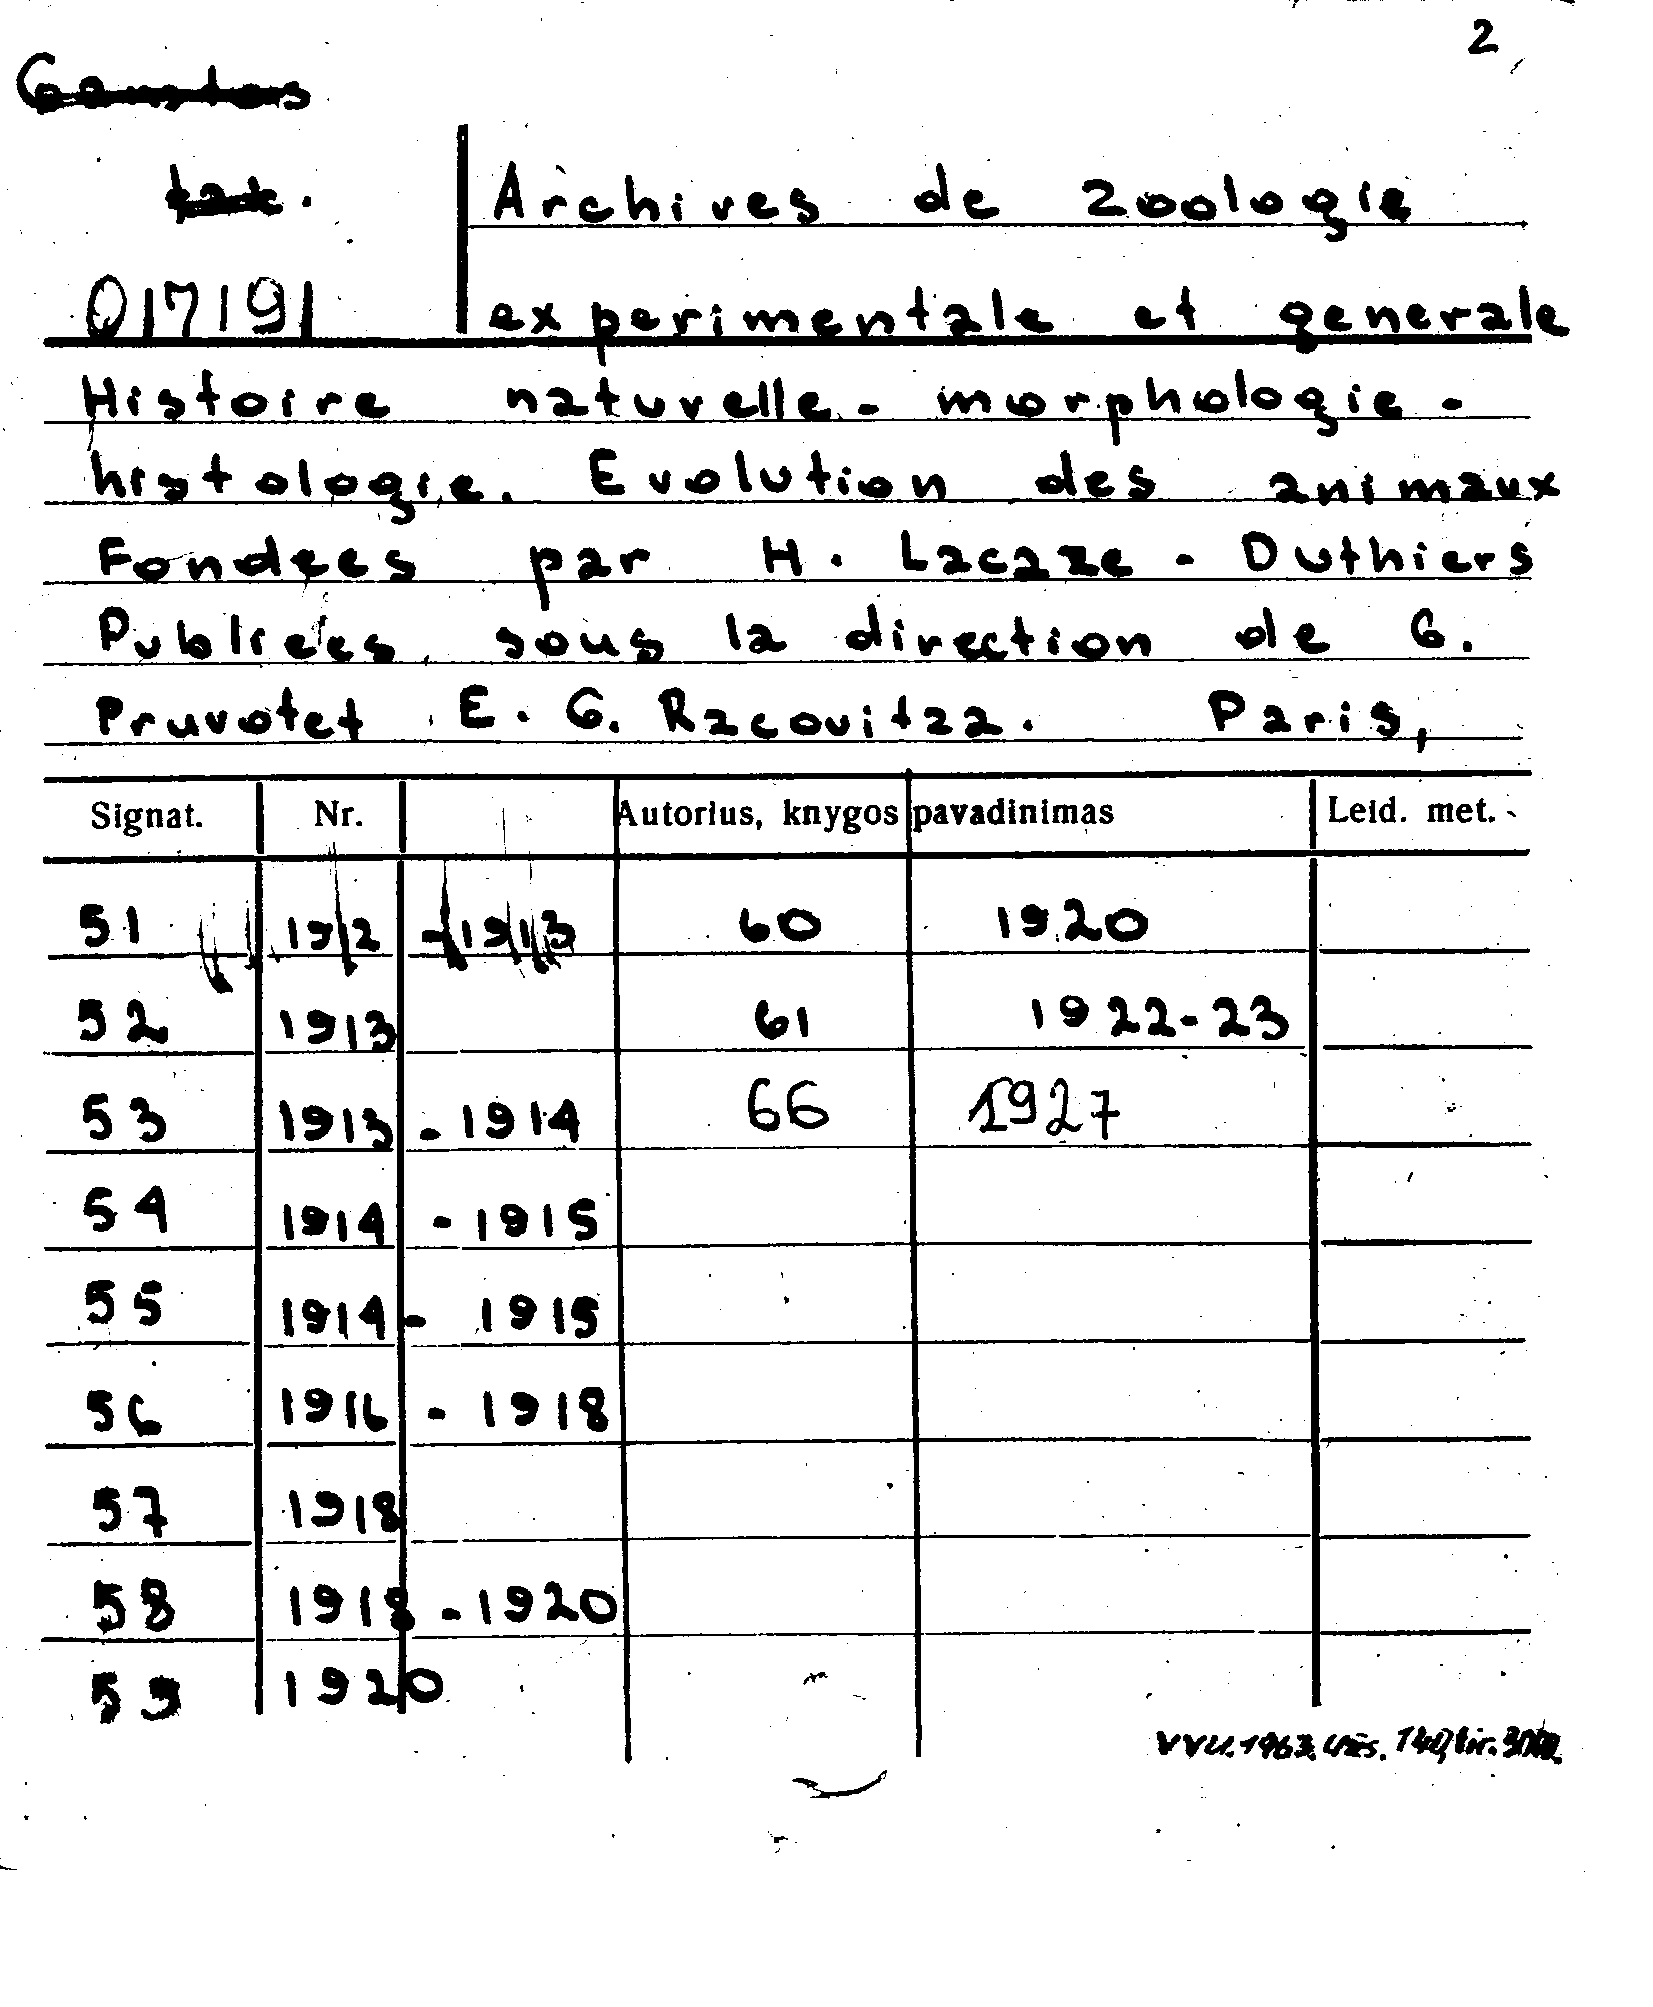 2
Gamtos
fak.
Archives de Zoologie
Q17191
experimentale et generale
Histoire naturelle - morphologie -
histologie. Evolution des animaux
Fondées par H. Lacaze - Duthiers
Publiées sous la direction de G.
Pruvot et E. G. Racovitza. Paris,
Signat. Nr. Autorius, knygos pavadinimas Leid. met.
51 1912 - 1913 60 1920
52 1913 61 1922-23
53 1913 - 1914 66 1927
54 1914 - 1915
55 1914 - 1915
56 1916 - 1918
57 1918
58 1918 - 1920
59 1920
VVU. 1963. Užs. 140, tir.